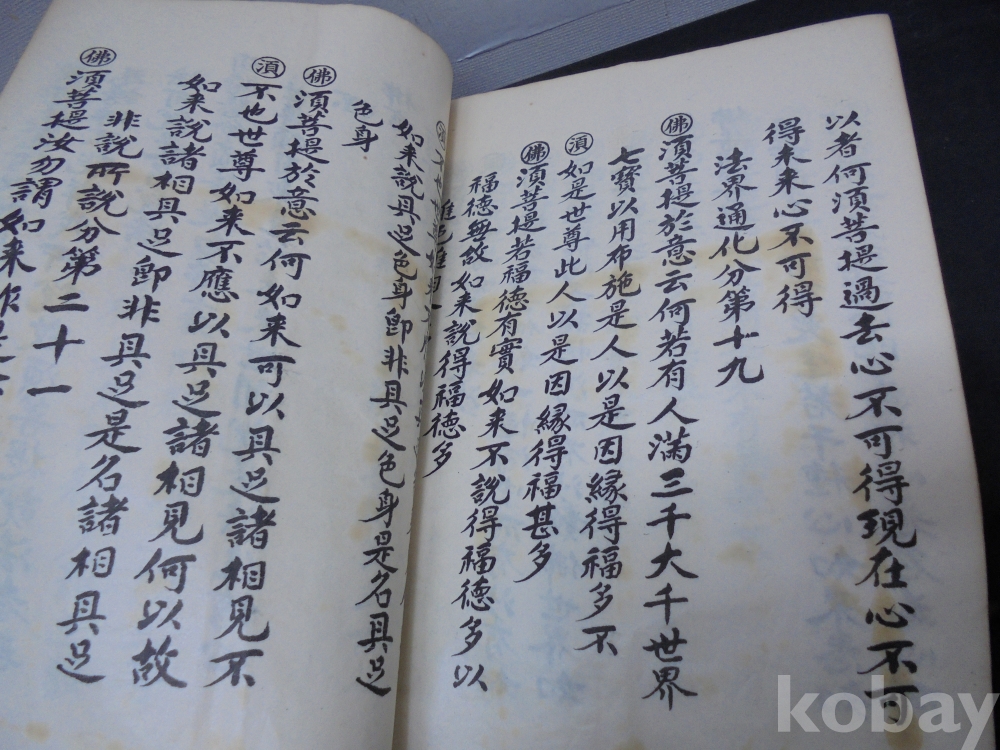 以者何須菩提過去心不可得現在心不可
得未来心不可得
法界通化分第十九
佛 須菩提於意云何若有人滿三千大千世界
七寶以用布施是人以是因緣得福多不
須 如是世尊此人以是因緣得福甚多
佛 須菩提若福德有實如来不說得福德多以
福德無故如来說得福德多
如来說具足色身卽非具足色身是名具足
色身
佛 須菩提於意云何如来可以具足諸相見不
須 不也世尊如来不應以具足諸相見何以故
如来說諸相具足卽非具足是名諸相具足
非說所說分第二十一
佛 須菩提汝勿謂如来作是
kobay